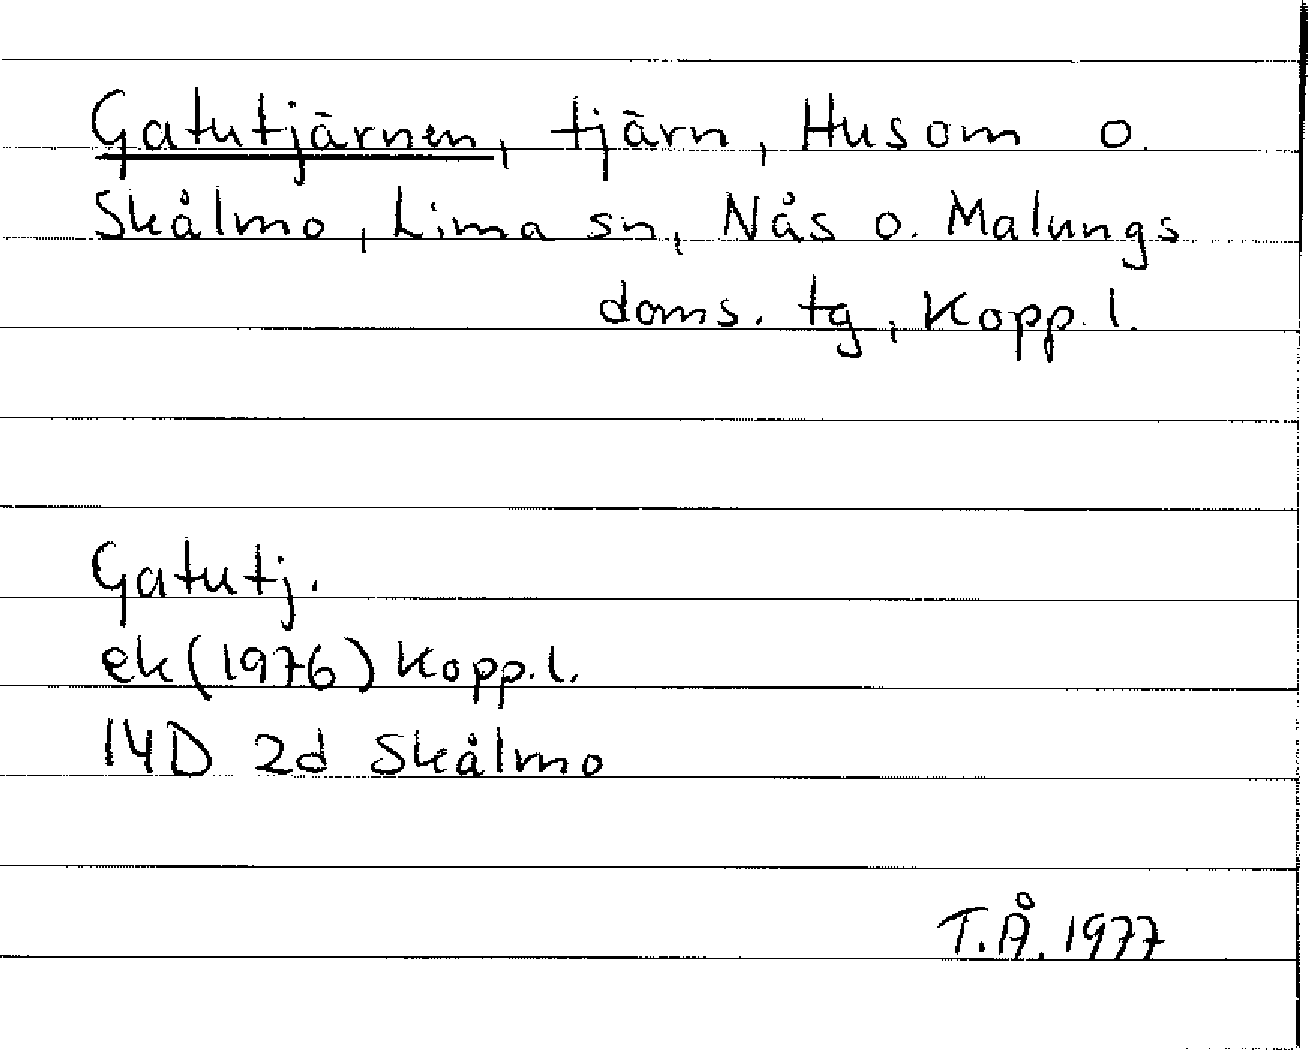 Gatutjärnen, tjärn, Husom o.
Skålmo, Lima sn, Nås o. Malungs
doms. tg, Kopp. l.
Gatutj.
ek (1976) Kopp. l.
14D 2d Skålmo
T.Å. 1977